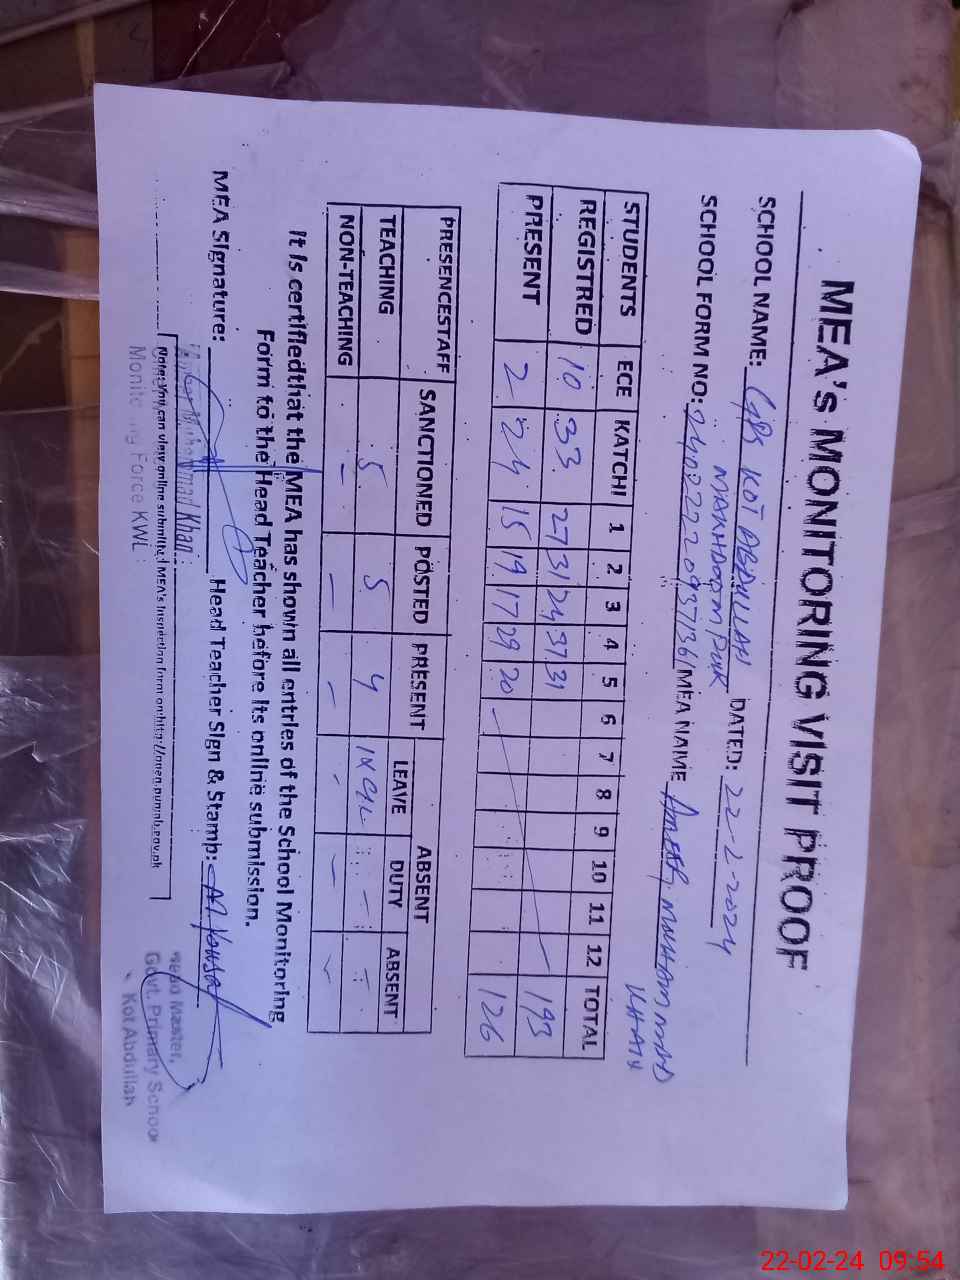 MEA's MONITORING VISIT PROOF
SCHOOL NAME: GPS KOT ABDULLAH DATED: 22-2-2024
MAKHDOOM PUR
SCHOOL FORM NO: MEA NAME AMEER MUHAMMAD
KHAN
STUDENTS ECE KATCHI 1 2 3 4 5 6 7 8 9 10 11 12 TOTAL
REGISTRED 10 33 27 31 24 37 31 193
PRESENT 2 24 15 19 17 29 20 126
PRESENCESTAFF SANCTIONED POSTED PRESENT ABSENT
LEAVE DUTY ABSENT
TEACHING 5 5 4 1xCL -
NON-TEACHING - - - - -
It is certifiedthat the MEA has shown all entries of the School Monitoring
Form to the Head Teacher before its online submission.
MEA Signature: Head Teacher Sign & Stamp:
Muhammad Khan
Note: You can view online submitted MEA's Inspection form on http://open.punjab.gov.pk
Monitoring Force KWL
Head Master,
Govt. Primary School
Kot Abdullah
22-02-24 09:54